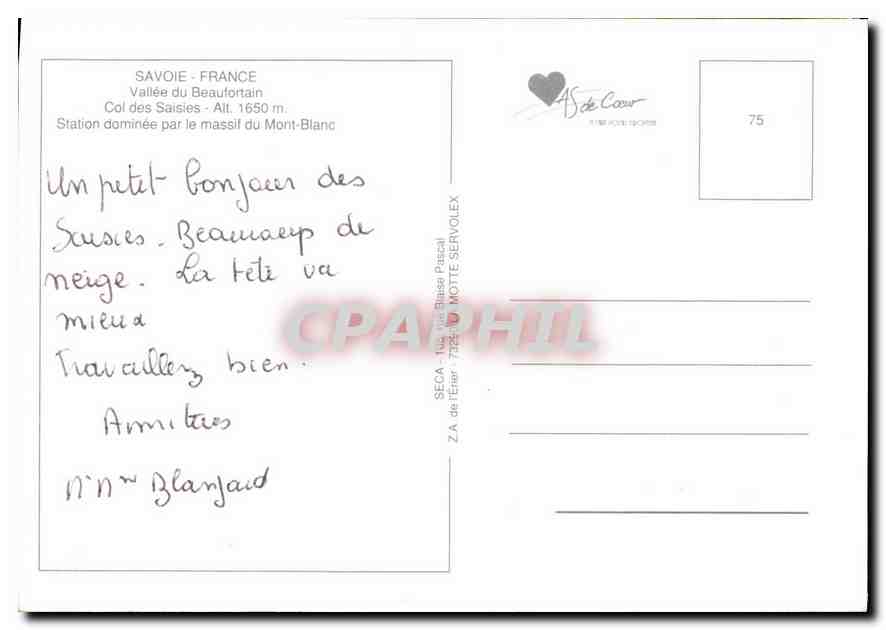 SAVOIE - FRANCE
Vallée du Beaufortain
Col des Saisies - Alt. 1650 m.
Station dominée par le massif du Mont-Blanc
Un petit bonjour des
Saisies. Beaucoup de
neige. La tête va
mieux
Travaillez bien.
Amitiés
SECA - 108, rue Blaise Pascal
Z.A. de l'Erier - 73290 LA MOTTE SERVOLEX
AS de Cœur
75
CPAPHIL